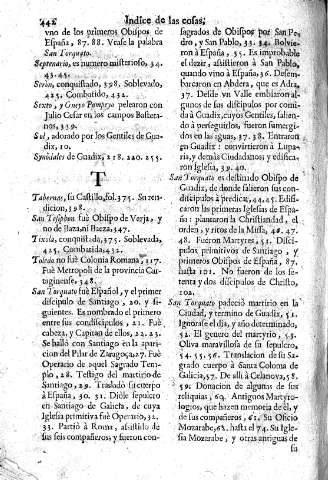 442 Indice de las cosas,
vno de los primeros Obispos de
España, 87. 88. Vease la palabra
San Torquato.
Septenario, es numero misterioso, 34.
43. 45.
Seron, conquistado, 398. Soblevado,
425. Combatido, 432.
Sexto, y Gneyo Pompeyo pelearon con
Julio Cesar en los campos Bosteta-
nos, 359.
Sul, adorado por los Gentiles de Gua-
dix, 10.
Synodales de Guadix, 218. 220. 255.
T
Tabernas, su Castillo, fol. 375. Su ren-
dicion, 398.
San Tesiphon fuè Obispo de Verja, y
no de Baza, ni Baeza, 347.
Tixola, conquistada, 375. Soblevada,
425. Combatida, 432.
Toledo no fuè Colonia Romana, 317.
Fuè Metropoli de la provincia Car-
taginense, 348.
San Torquato fuè Español, y el primer
discipulo de Santiago, 20. y si-
guientes. Es nombrado el primero
entre sus condiscipulos, 21. Fuè
cabeza, y Capitan de ellos, 22. 23.
Se hallò con Santiago en la apari-
cion del Pilar de Zaragoça, 27. Fuè
Operario de aquel Sagrado Tem-
plo, 28. Testigo del martirio de
Santiago, 29. Trasladò su cuerpo
à España, 30. 31. Diòle sepulcro
en Santiago de Galicia, de cuya
Iglesia primitiva fuè Operario, 32.
33. Partiò à Roma, assistido de
sus seis compañeros, y fueron con-
sagrados de Obispos por San Pe-
dro, y San Pablo, 33. 34. Bolvie-
ron à España, 35. Es improbable
el dezir, assistieron à San Pablo,
quando vino à España, 36. Desem-
barcaron en Abdera, que es Adra,
37. Desde vn Valle embiaron al-
gunos de sus discipulos por comi-
da à Guadix, cuyos Gentiles, salien-
do à perseguirlos, fueron sumergi-
dos en las aguas, 37. 38. Entraron
en Guadix: convirtieron à Lupa-
ria, y demàs Ciudadanos, y edifica-
ron Iglesia, 39. 40.
San Torquato es destinado Obispo de
Guadix, de donde salieron sus con-
discipulos à predicar, 44. 45. Edifi-
caron las primeras Iglesias de Espa-
ña: plantaron la Christiandad, el
orden, y ritos de la Missa, 46. 47.
48. Fueron Martyres, 51. Disci-
pulos primitivos de Santiago, y
primeros Obispos de España, 87.
hasta 101. No fueron de los se-
tenta y dos discipulos de Christo,
102.
San Torquato padeciò martirio en la
Ciudad, y termino de Guadix, 51.
Ignorase el dia, y año determinado,
52. El genero del martyrio, 53.
Oliva maravillosa de su sepulcro,
54. 55. 56. Translacion de su Sa-
grado cuerpo à Santa Coloma de
Galicia, 57. De alli à Celanova, 58.
59. Donacion de algunas de sus
reliquias, 60. Antiguos Martyro-
logios, que hazen memoria de èl, y
de sus compañeros, 61. Su Oficio
Mozarabe, 68. hasta el 74. Su Igle-
sia Mozarabe, y otras antiguas de
su